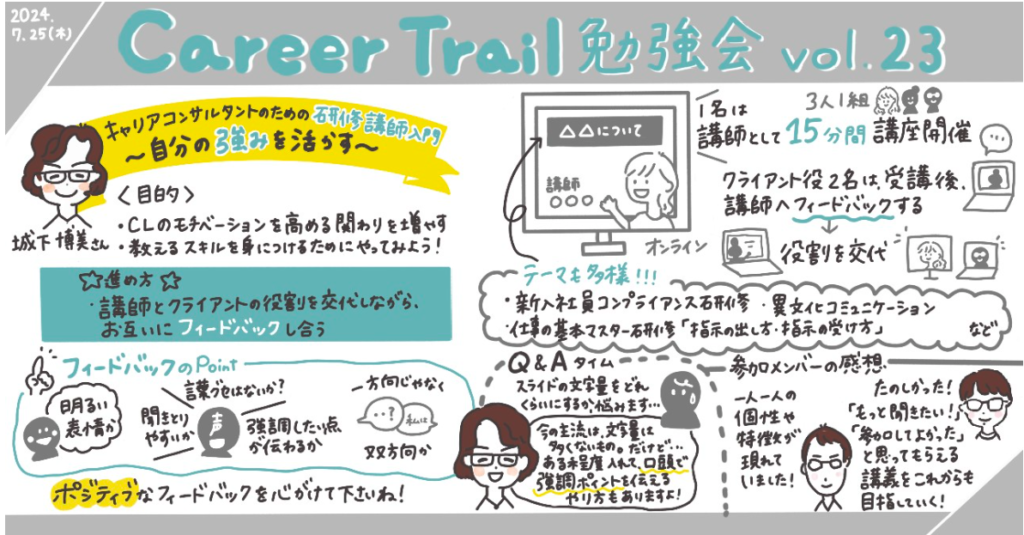 2024.
7.25(木)
Career Trail 勉強会 vol.23
キャリアコンサルタントのための 研修講師入門
～自分の強みを活かす～
城下 博美さん
〈目的〉
・CLのモチベーションを高める関わりを増やす
・教えるスキルを身につけるためにやってみよう!
☆進め方☆
・講師とクライアントの役割を交代しながら、
お互いにフィードバックし合う
フィードバックのPoint
明るい
表情か
聞きとり
やすいか
言葉グセはないか?
声
強調したい点
が伝わるか
一方向じゃなく
・・?
私は
双方向か
ポジティブなフィードバックを心がけて下さいね!
△△について
講師
オンライン
3人1組
1名は
講師として15分間 講座開催
クライアント役2名は、受講後、
講師へフィードバックする
役割を交代
テーマも多様!!!
・新入社員コンプライアンス研修 ・異文化コミュニケーション
・仕事の基本マスター研修「指示の出し方・指示の受け方」 など
Q&Aタイム
スライドの文字量をどれ
くらいにするか悩みます…
今の主流は、文字量は
多くないもの。だけど…
ある程度入れて、口頭で
強調ポイントを伝える
やり方もありますよ!
参加メンバーの感想
一人一人の
個性や
特徴が
現れて
いました!
たのしかった!
「もっと聞きたい!」
「参加してよかった」
と思ってもらえる
講義をこれからも
目指していく!